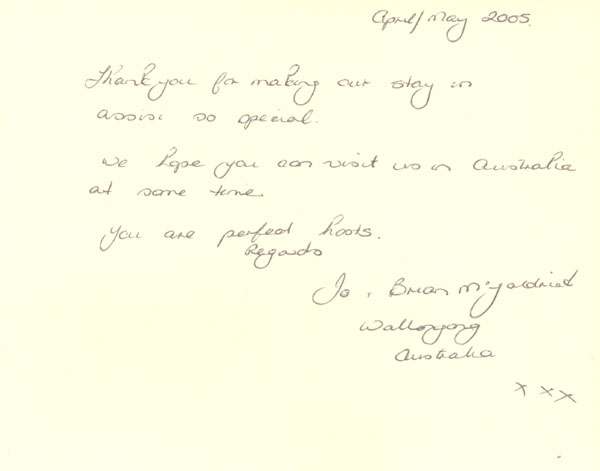 April/May 2005.
Thank you for making our stay in
assisi so special.
We hope you can visit us in Australia
at some time.
You are perfect hosts.
Regards
Jo, Brian
Wollongong
Australia
x x x